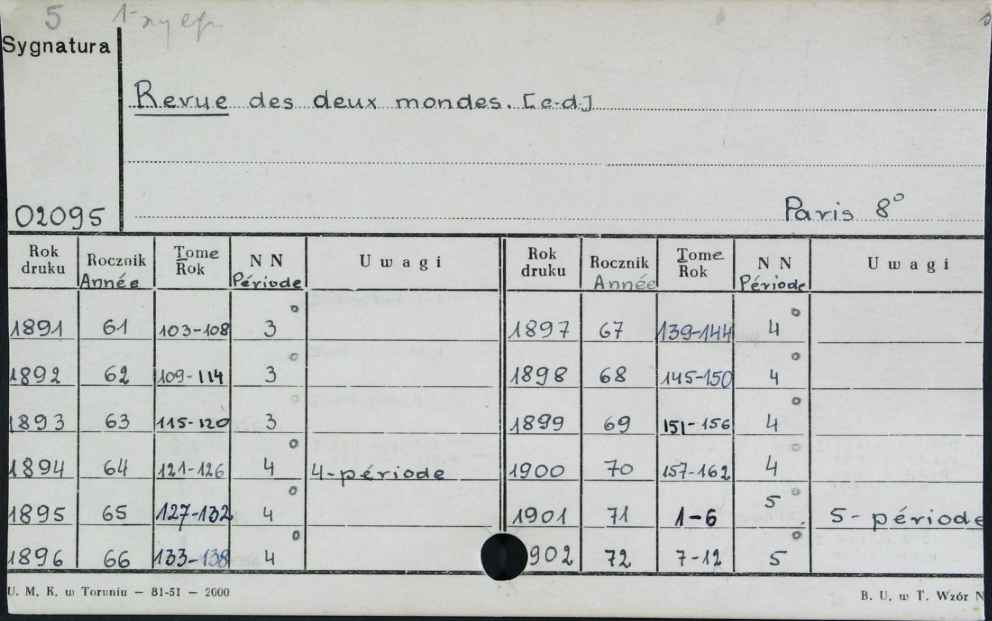 5
Sygnatura
Revue des deux mondes. [c-d.]
Paris 8°
02095
Rok druku Rocznik Année Tome Rok NN Période Uwagi Rok druku Rocznik Année Tome Rok NN Période Uwagi
1891 61 103-108 3° 1897 67 139-144 4°
1892 62 109-114 3° 1898 68 145-150 4°
1893 63 115-120 3° 1899 69 151-156 4°
1894 64 121-126 4° 4-période 1900 70 157-162 4°
1895 65 127-132 4° 1901 71 1-6 5° 5-période
1896 66 133-138 4° 902 72 7-12 5°
U. M. K. w Toruniu — 81-51 — 2000 B. U. w T. Wzór N